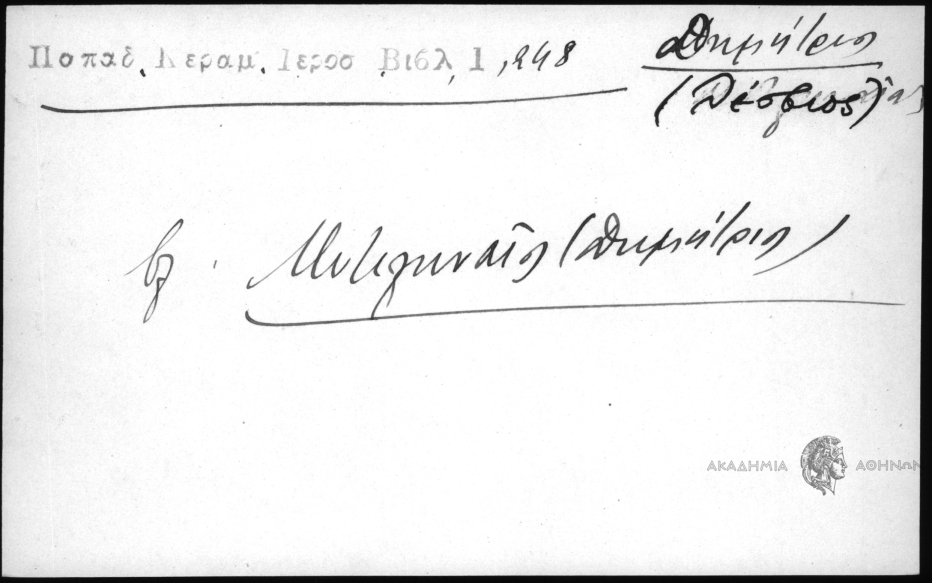 Παπαδ. Κεραμ. Ιεροσ Βιβλ 1, 248
Δημήτριος
(Λέσβιος)
βλ. Μυτιληναῖος (Δημήτριος)
ΑΚΑΔΗΜΙΑ ΑΘΗΝΩΝ